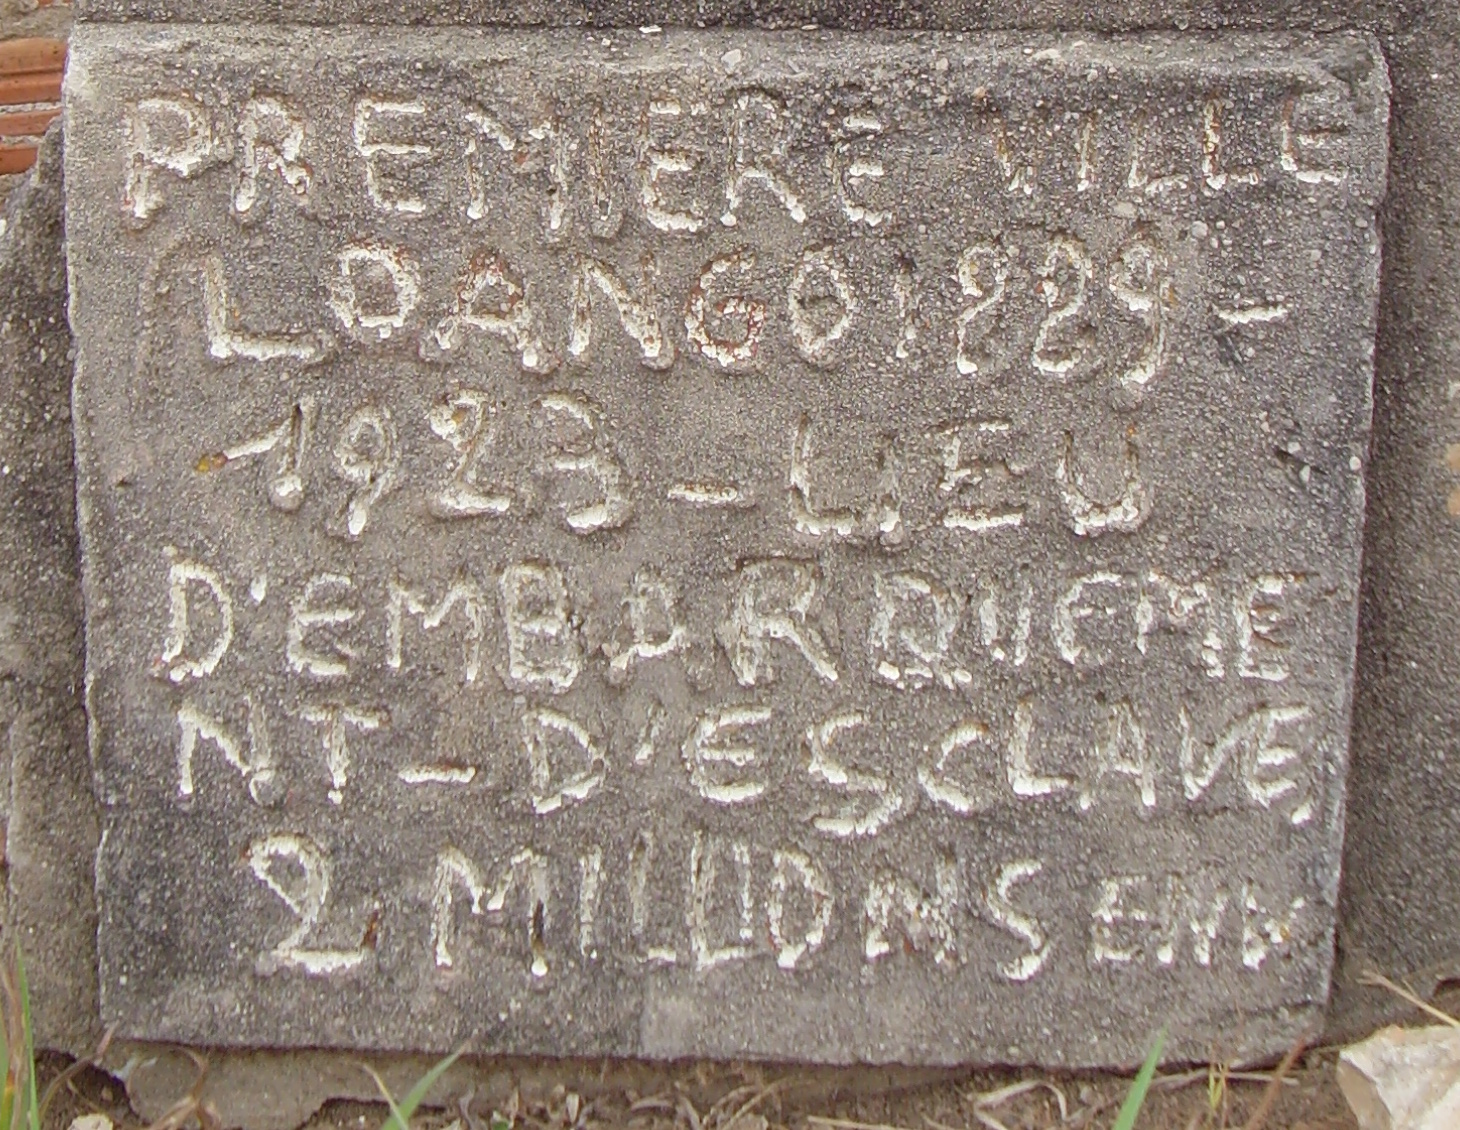 PREMIERE VILLE
LOANGO 1889 -
- 1923 - LIEU
D'EMBARQUEME
NT - D'ESCLAVE,
2 MILLIONS EMB